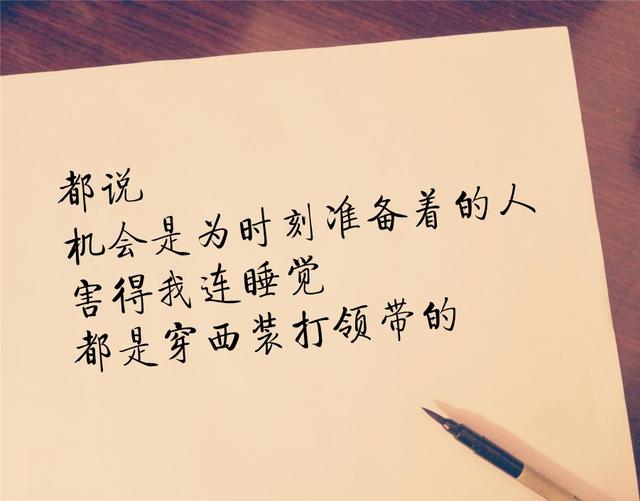 都说
机会是为时刻准备着的人
害得我连睡觉
都是穿西装打领带的